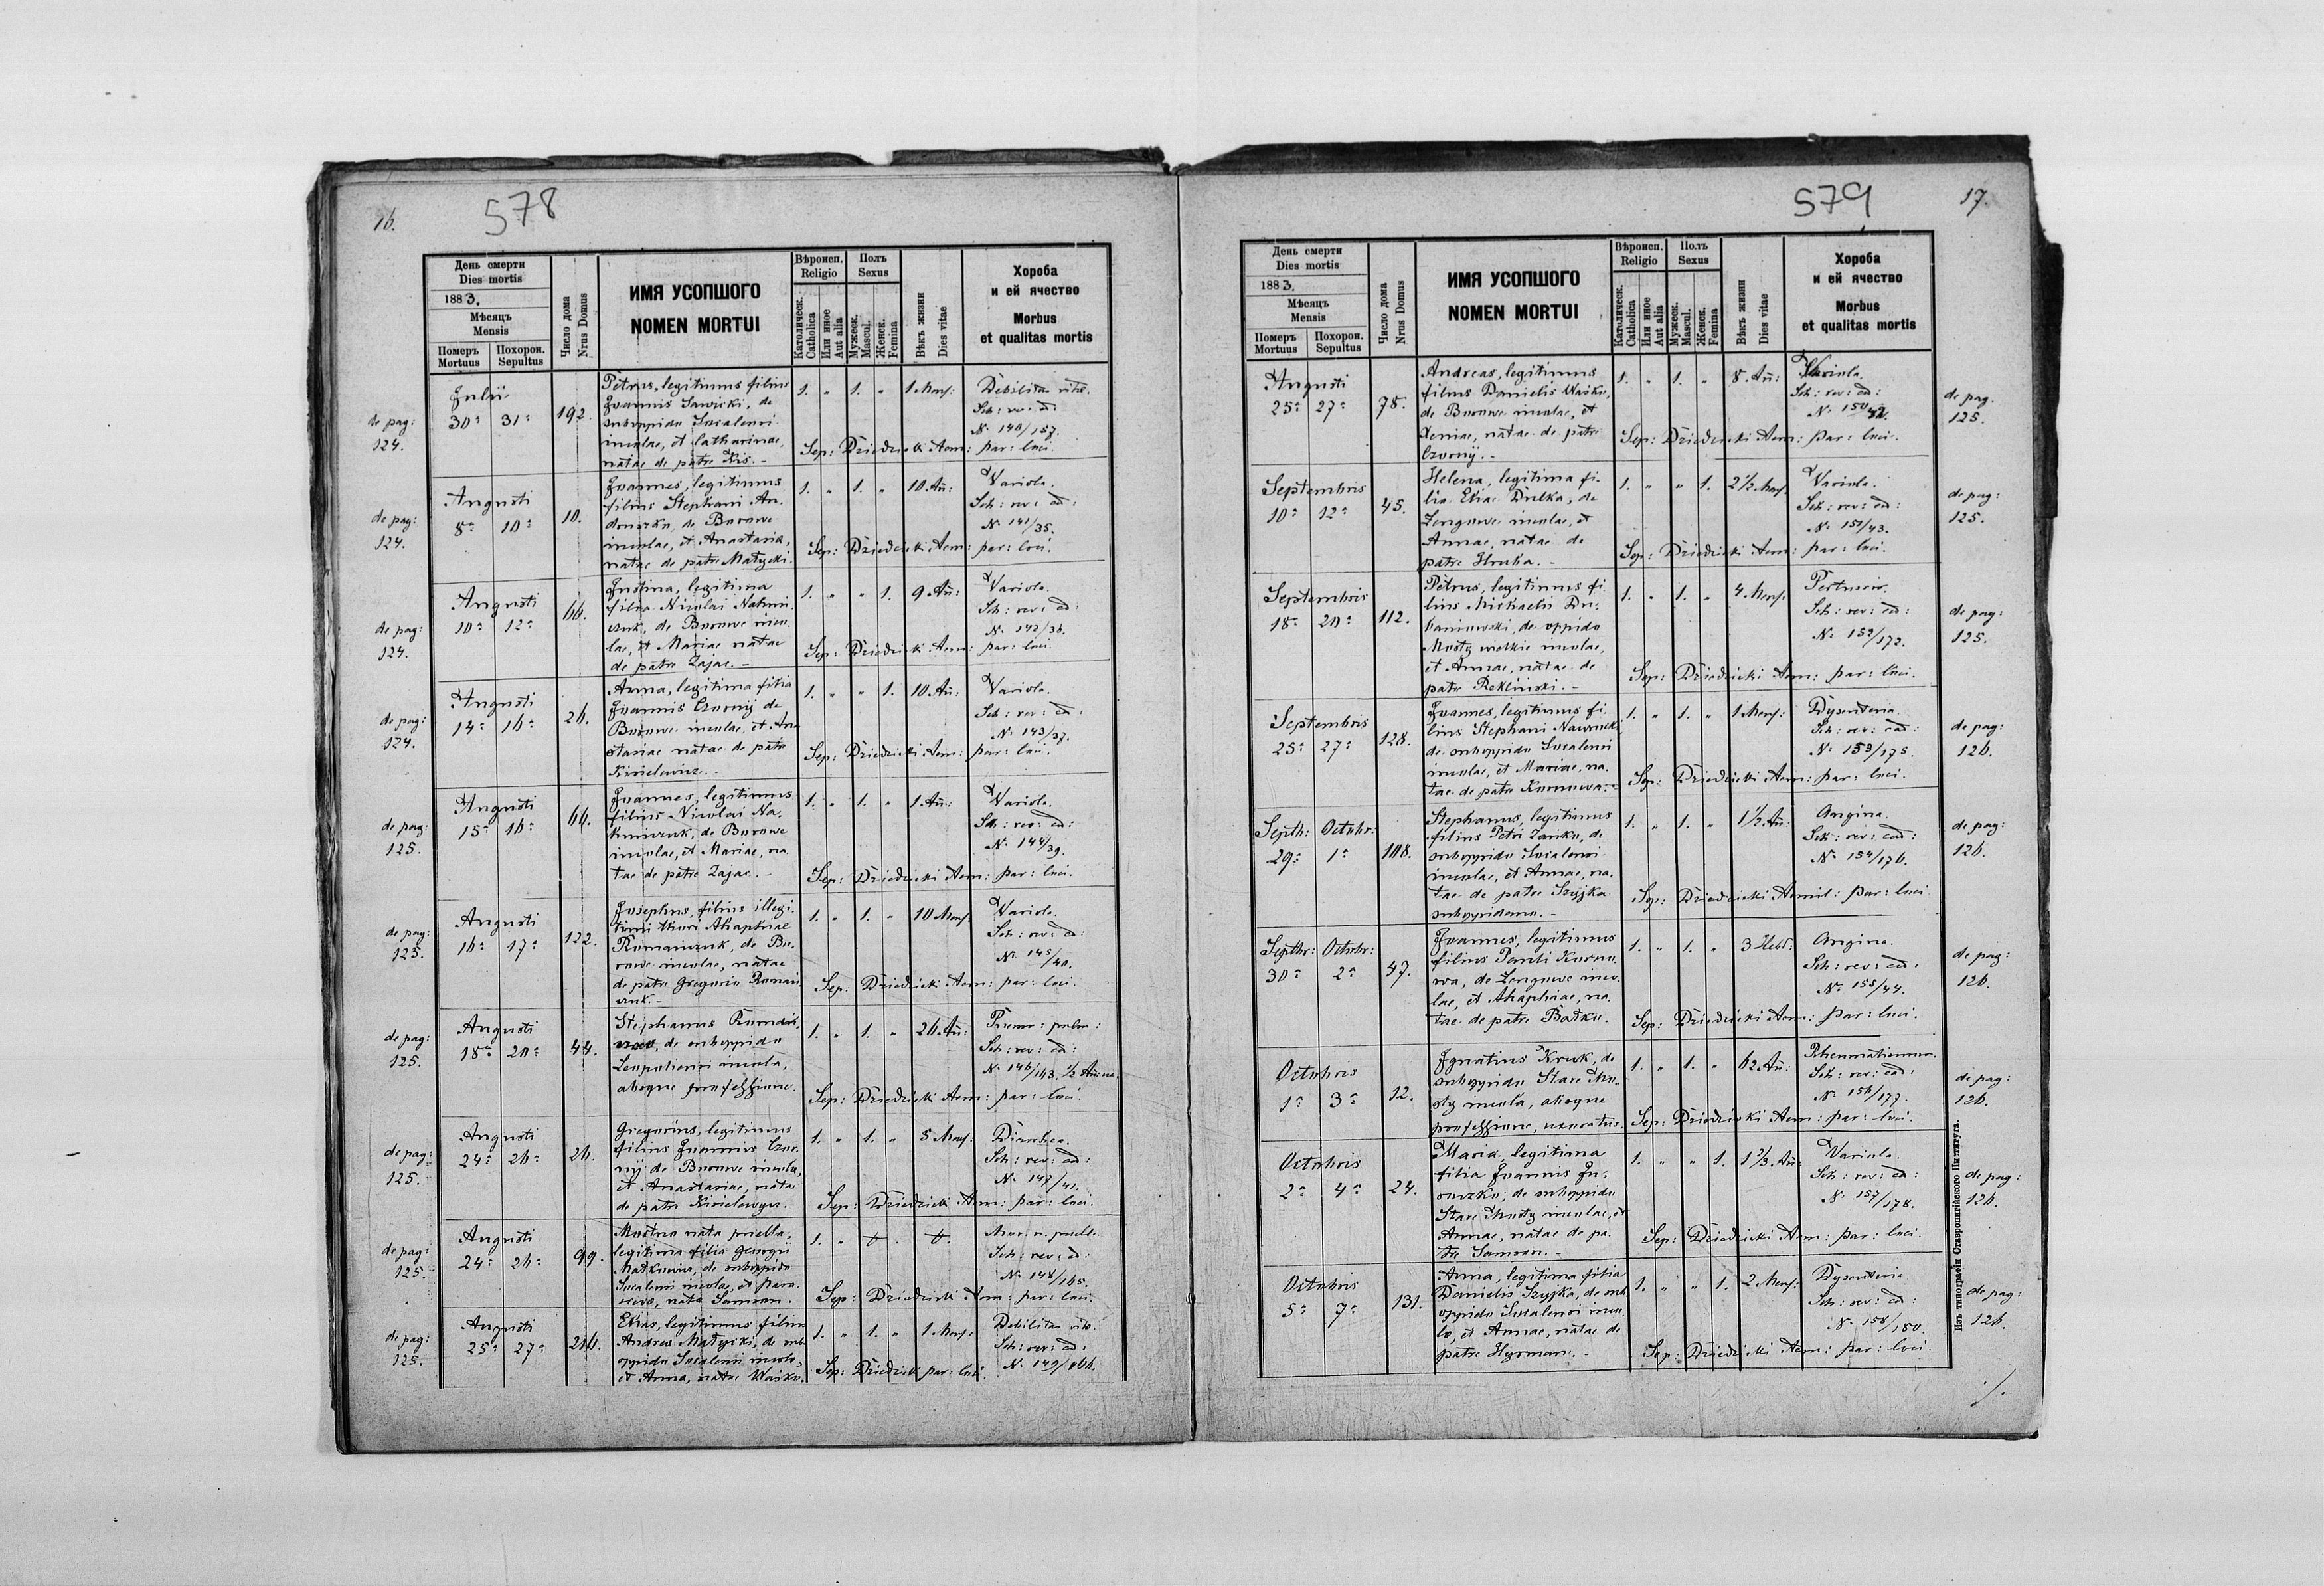 16.
578
День смерти
Dies mortis
1883.
Мѣсяцъ
Mensis
Померъ
Mortuus
Похорон.
Sepultus
Число дома
Nrus Domus
ИМЯ УСОПШОГО
NOMEN MORTUI
Вѣроисп.
Religio
Католическ.
Catholica
Или иное
Aut alia
Полъ
Sexus
Мужеск.
Mascul.
Женск.
Femina
Вѣкъ жизни
Dies vitae
Хороба
и ей ячество
Morbus
et qualitas mortis
de pag:
124.
Julii
30 31 192.
Petrus, legitimus filius
Joannis Sawicki, de
suboppido
incolae, et Catharinae,
natae de patre Kis. -
1. " 1. " 1 Mens:
Debilitas vitae.
Sch: rev: ad:
N. 140/157.
Sep: Dziedzicki Adm: par: loci.
de pag:
124.
Augusti
8 10 10.
Joannes, legitimus
filius Stephani An
druszko, de Burowe
incolae, et Anastasiae,
natae de patre Matycki.
1. " 1. " 10. An:
Variola.
Sch: rev: ad:
N. 141/35.
Sep: Dziedzicki Adm: par: loci.
de pag:
124.
Augusti
10 12 66.
Justina, legitima
filia Nicolai
de Burowe inco
lae, et Mariae natae
de patre Zajac. -
1. " " 1. 9 An:
Variola.
Sch: rev: ad:
N. 142/36.
Sep: Dziedzicki Adm: par: loci.
de pag:
124.
Augusti
14 16 26.
Anna, legitima filia
Joannis Czornij de
Burowe incolae, et Ana
stasiae natae de patre
Kisielewicz. -
1. " " 1. 10. An:
Variola.
Sch: rev: ad:
N. 143/37.
Sep: Dziedzicki Adm: par: loci.
de pag:
125.
Augusti
15 16 66.
Joannes, legitimus
filius Nicolai
de Burowe
incolae, et Mariae, na
tae de patre Zajac. -
1. " 1. " 1. An:
Variola.
Sch: rev: ad:
N. 144/39.
Sep: Dziedzicki Adm: par: loci.
de pag:
125.
Augusti
16 17 122.
Josephus, filius illegi
timi thori Ahaphiae
Romaniczuk, de Bu
rowe incolae, natae
de patre Gregorio Romani
czuk. -
1. " 1. " 10 Mens:
Variola.
Sch: rev: ad:
N. 145/40.
Sep: Dziedzicki Adm: par: loci.
de pag:
125.
Augusti
18 20 44.
Stephanus
de suboppido
incola,
absque professione.
1. " 1. " 26. An:
Pneum: pulm:
Sch: rev: ad:
N. 146/163.
Sep: Dziedzicki Adm: par: loci.
de pag:
125.
Augusti
24 26 26.
Gregorius, legitimus
filius Joannis Czor
nij de Burowe incola,
et Anastasiae, natae
de patre
1. " 1. " 5 Mens:
Diarrhea.
Sch: rev: ad:
N. 147/41.
Sep: Dziedzicki Adm: par: loci.
de pag:
125.
Augusti
24 26 99.
Mortuo nata puella,
legitima filia Georgii
de suboppido
incolae, et Para
nata Samson.
1. " + . +.
Mor. n. puella.
Sch: rev: ad:
N. 148/165.
Sep: Dziedzicki Adm: par: loci.
de pag:
125.
Augusti
25 27 216.
Elias, legitimus filius
Andreae Matycki, de sub
oppido incolae,
et Anna, natae Wasko.
1. " 1. " 1 Mens:
Debilitas vitae.
Sch: rev: ad:
N. 149/166.
Sep: Dziedzicki par: loci.
579
17.
День смерти
Dies mortis
1883.
Мѣсяцъ
Mensis
Померъ
Mortuus
Похорон.
Sepultus
Число дома
Nrus Domus
ИМЯ УСОПШОГО
NOMEN MORTUI
Вѣроисп.
Religio
Католическ.
Catholica
Или иное
Aut alia
Полъ
Sexus
Мужеск.
Mascul.
Женск.
Femina
Вѣкъ жизни
Dies vitae
Хороба
и ей ячество
Morbus
et qualitas mortis
Augusti
25 27 78.
Andreas, legitimus
filius Danielis Wasko,
de Burowe incolae, et
Xeniae, natae de patre
Czornij. -
1. " 1. " 8. An:
Variola.
Sch: rev: ad:
N. 150/42.
Sep: Dziedzicki Adm: par: loci.
de pag.
125.
Septembris
10 12 45.
Helena, legitima fi
lia Eliae Dulka, de
Zengowe incolae, et
Annae, natae de
patre Hruba. -
1. " " 1. 2 1/2 Mens:
Variola.
Sch: rev: ad:
N. 151/43.
Sep: Dziedzicki Adm: par: loci.
de pag:
125.
Septembris
18 20 112.
Petrus, legitimus fi
lius Michaelis Du
kaniowski, de oppido
Mosty wielkie incolae,
et Annae, natae de
patre Rekliński. -
1. " 1. " 4 Mens:
Sch: rev: ad:
N. 152/172.
Sep: Dziedzicki Adm: par: loci.
de pag:
125.
Septembris
25 27 128.
Joannes, legitimus fi
lius Stephani
de suboppido
incolae, et Mariae, na
tae de patre
1. " 1. " 1 Mens:
Dysenteria.
Sch: rev: ead:
N. 153/175.
Sep: Dziedzicki Adm: par: loci.
de pag:
126.
Septb: Octobr:
29 1 108.
Stephanus, legitimus
filius Petri Zanko, de
suboppido
incolae, et Annae, na
tae de patre Szyjka
suboppidano. -
1. " 1. " 1 1/2 An:
Angina.
Sch: rev: ead:
N. 154/176.
Sep: Dziedzicki Admil: par: loci.
de pag:
126.
Septbr: Octobr:
30 2 47.
Joannes, legitimus
filius Pauli Korno
wa, de Zengowe inco
lae, et Ahaphiae, na
tae de patre Batko.
1. " 1. " 3 Hebd:
Angina.
Sch: rev: ead:
N. 155/44.
Sep: Dziedzicki Adm: par: loci.
de pag:
126.
Octobris
1 3 12.
Ignatius Kruk, de
suboppido Stare Mo
sty incola, absque
professione, uxoratus.
1. " 1. " 62 An:
Rheumatismus.
Sch: rev: ead:
N. 156/177.
Sep: Dziedzicki Adm: par: loci.
de pag:
126.
Octobris
2 4 24.
Maria, legitima
filia Joannis
de suboppido
Stare Mosty incolae, et
Annae, natae de pa
tre Samson. -
1. " " 1. 1 2/3 An:
Variola.
Sch: rev: ad:
N. 157/178.
Sep: Dziedzicki Adm: par: loci.
de pag:
126.
Octobris
5 7 131.
Anna, legitima filia
Danielis Szyjka, de sub
oppido inco
lae, et Annae, natae de
patre Hyrman. -
1. " " 1. 2 Mens:
Dysenteria
Sch: rev: ad:
N. 158/180.
Sep: Dziedzicki Adm: par: loci.
de pag:
126.
Изъ типографіи Ставропигійского Института.